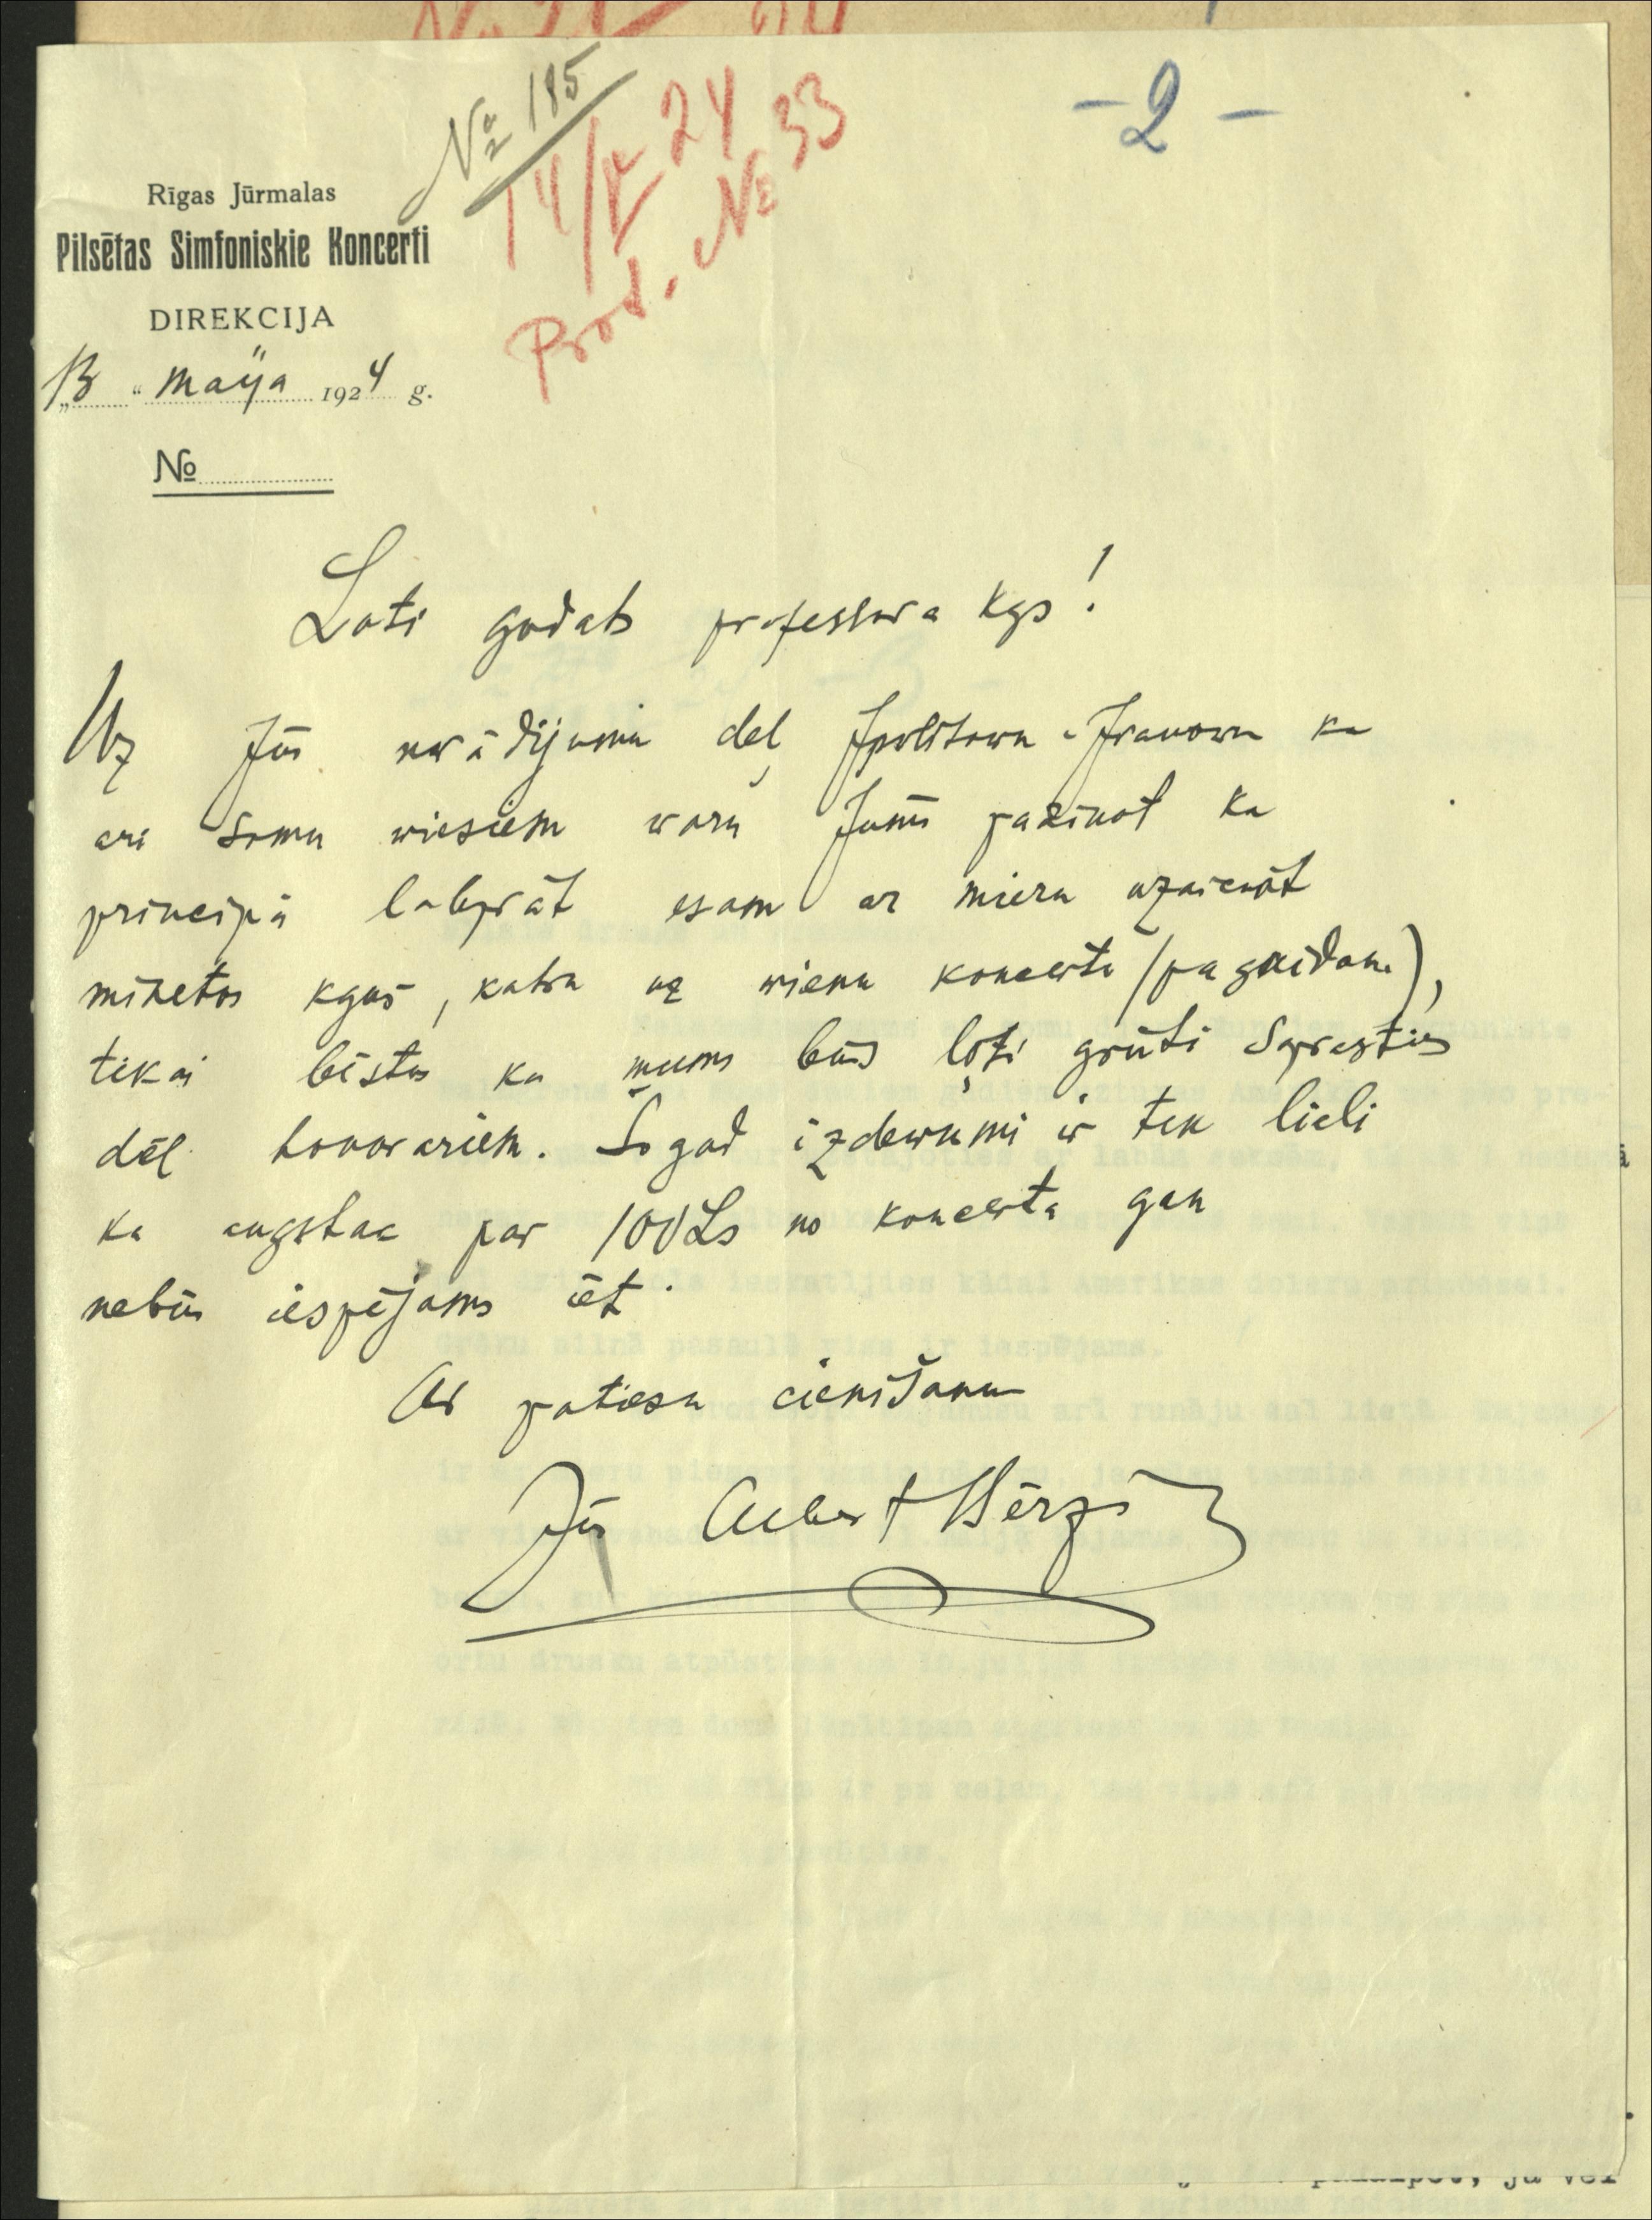 № 185
14/V 24
Prot. № 33
- 2 -
Rīgas Jūrmalas
Pilsētas Simfoniskie Koncerti
DIREKCIJA
„13“ maija 1924 g.
№
Loti godats professora kgs!
Uz Jūs norādijumu deļ Ipolitowa-Iwanowa ka
ari somu wiesiem waru Jums pazinot ka
principā labprāt esam ar mieru uzaicināt
minetos kgus, katru uz wienu koncertu (pagaidam),
tikai bistos ka mums būs ļoti grūti saprasties
dēļ honorariem. Šogad izdewumi ir tik lieli
ka augstac par 100 Ls no koncerta gan
nebūs iespējams iet.
Ar patiesu cienišanu
Jūs Albert Bērziņ